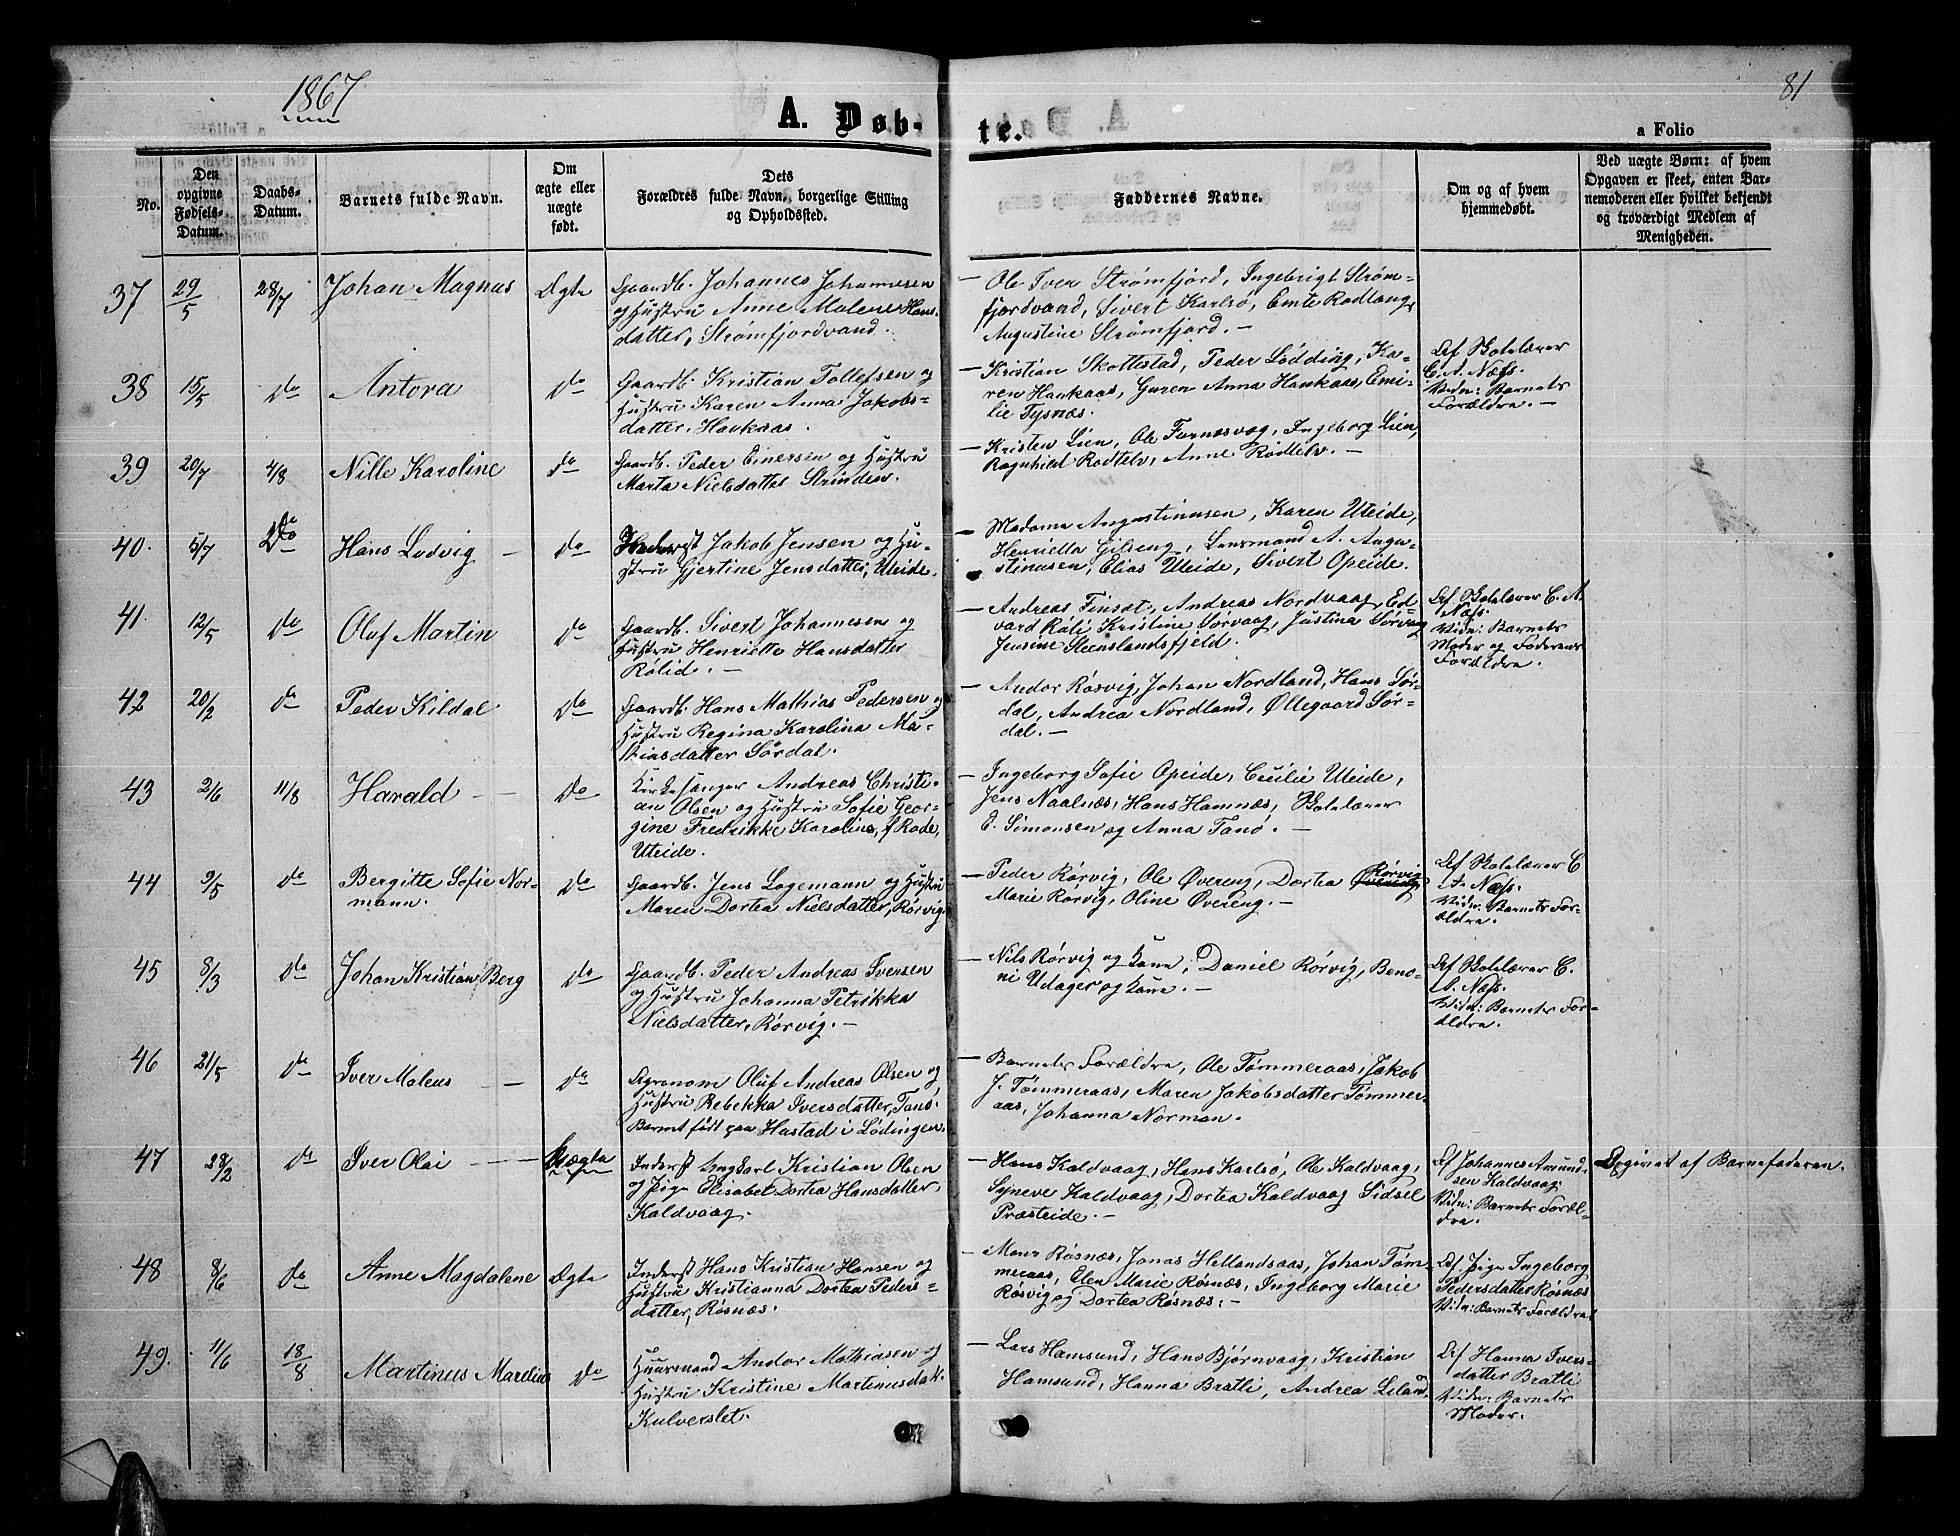 1867
81
A. Døb-
te.
a Folio
No.
Den
opgivne
Fødsels-
Datum.
Daabs-
Datum.
Barnets fulde Navn.
Om
ægte eller
uægte
født.
Dets
Forældres fulde Navn, borgerlige Stilling
og Opholdssted.
Faddernes Navne.
Om og af hvem
hjemmedøbt.
Ved uægte Børn: af hvem
Opgaven er skeet, enten Bar-
nemoderen eller hvilket bekjendt
og troværdigt Medlem af
Menigheden.
37 29/5 28/7 Johan Magnus Ægte
Gaardb. Johannes Johannesen
og Hustru Anne Malene Hans-
datter, Strømfjordvand.
— Ole Iver Strømfjord, Ingebrigt Strøm-
fjordvand, Sivert Karlsø, Emte Rodtang,
Augustine Strømfjord. —
38 15/5 Do Antora Do
Gaardb. Kristian Tollefsen og
Hustru Karen Anna Jakobs-
datter, Haukaas.
— Kristian Skottestad, Peder Lødding, Ka-
ren Haukaas, Guren Anna Haukaas, Emi-
lie Tysnæs.
Af Skolelærer
C. A. Næss.
Vidn: Barnets
Forældre. —
39 20/7 4/8 Nille Karoline Do
Gaardb. Peder Einersen og Hustru
Marta Nielsdatter Strinden.
— Kristen Lien, Ole Furnesvaag, Ingeborg Lien,
Ragnhild Rodtelv, Anne Rødtelv. —
40. 5/7 Do Hans Ludvig — Do
Inderst Jakob Jensen og Hu-
stru Gjertine Jensdatter, Uteide.
— Madame Augustinusen, Karen Uteide,
Henriette Gilseng, Lensmand A. Augu-
stinusen, Elias Uteide, Sivert Opeide.
41. 12/5 Do Oluf Martin Do
Gaardb. Sivert Johannesen og
Hustru Henriette Hansdatter
Rølid. —
— Andreas Finsæt, Andreas Nordvaag, Ed-
vard Røli Kristine Sørvaag, Justina Sørvaag
Jensine Steenslandsfjeld.
Af Skolelærer C. A.
Næss.
Vidn: Barnets
Moder og Faderens
Forældre.
42 20/2 Do Peder Kildal Do
Gaardb. Hans Mathias Pedersen og
Hustru Regina Karolina Ma-
thiasdatter Sørdal.
— Andor Røsvig, Johan Nordland, Hans Sør-
dal, Andrea Nordland, Øllegaard Sør-
dal. —
43 2/6 11/8 Harald — — Do
Kirkesanger Andreas Christi-
an Olsen og Hustru Sofie Geor-
gine Fredrikke Karoline, f Rode,
Uteide.
— Ingeborg Sofie Opeide, Cecilie Uteide,
Jens Naalnæs, Hans Hamnæs, Skolelærer
E. Simonsen og Anna Tanø. —
44 9/5 Do Bergitte Sofie Nor-
mann. Do
Gaardb. Jens Logemann og Hustru
Maren Dortea Nielsdatter, Rørvig.
— Peder Rørvig, Ole Øvereng, Dortea Rørvig
Marie Rørvig, Oline Øvereng. —
Af Skolelærer C
A. Næss.
Vidn: Barnets For-
ældre.
45 8/3 Do Johan Kristian Berg Do
Gaardb. Peder Andreas Iversen
og Hustru Johanna Petrikka
Nielsdatter, Rørvig. —
— Nils Rørvig og Kone, Daniel Rørvig, Beno-
ni Udager og Kone. —
Af Skolelærer C.
A. Næss.
Vidn: Barnets For-
ældre.
46 21/5 Do Iver Maleus — Do
Agronom Oluf Andreas Olsen og
Hustru Rebekka Iversdatter, Tans.
Barnet født paa Hustad i Lødingen.
— Barnets Forældre, Ole Tømmeraas, Jakob
J. Tømmeraas, Maren Jakobsdatter Tømmer-
aas, Johanna Norman.
47 28/2 Do Iver Olai — — Uægte
Inderst Ungkarl Kristian Olsen
og Pige Elisabet Dortea Hansdatter
Kaldvaag.
— Hans Kaldvaag, Hans Karlsø, Ole Kaldvaag,
Syneve Kaldvaag, Dortea Kaldvaag Sidsel
Præsteide. —
Af Johannes Amund-
sen Kaldvaag.
Vidn: Barnets Foræl-
dre.
Opgivet af Barnefaderen.
48 8/6 Do Anne Magdalene Ægte
Inderst Hans Kristian Hansen og
Hustru Kristianna Dortea Peders-
datter, Røsnæs.
— Mons Røsnæs, Jonas Hellandsaas, Johan Tøm-
meraas, Elen Marie Røsnæs, Ingeborg Marie
Røsvig og Dortea Røsnæs. —
Af Pige Ingeborg
Pedersdatter Røsnæs
Vidn: Barnets Forældre
49. 11/6 18/8 Martinus Marelius Do
Huusmand Andor Mathiasen og
Hustru Kristine Martinusdatt.
Kulverslet.
— Lars Hamsund, Hans Bjørnvaag, Kristian
Hamsund, Hanna Bratli, Andrea Leland.
Af Hanna Ivers-
datter Bratli
Vidn: Barnets
Moder.